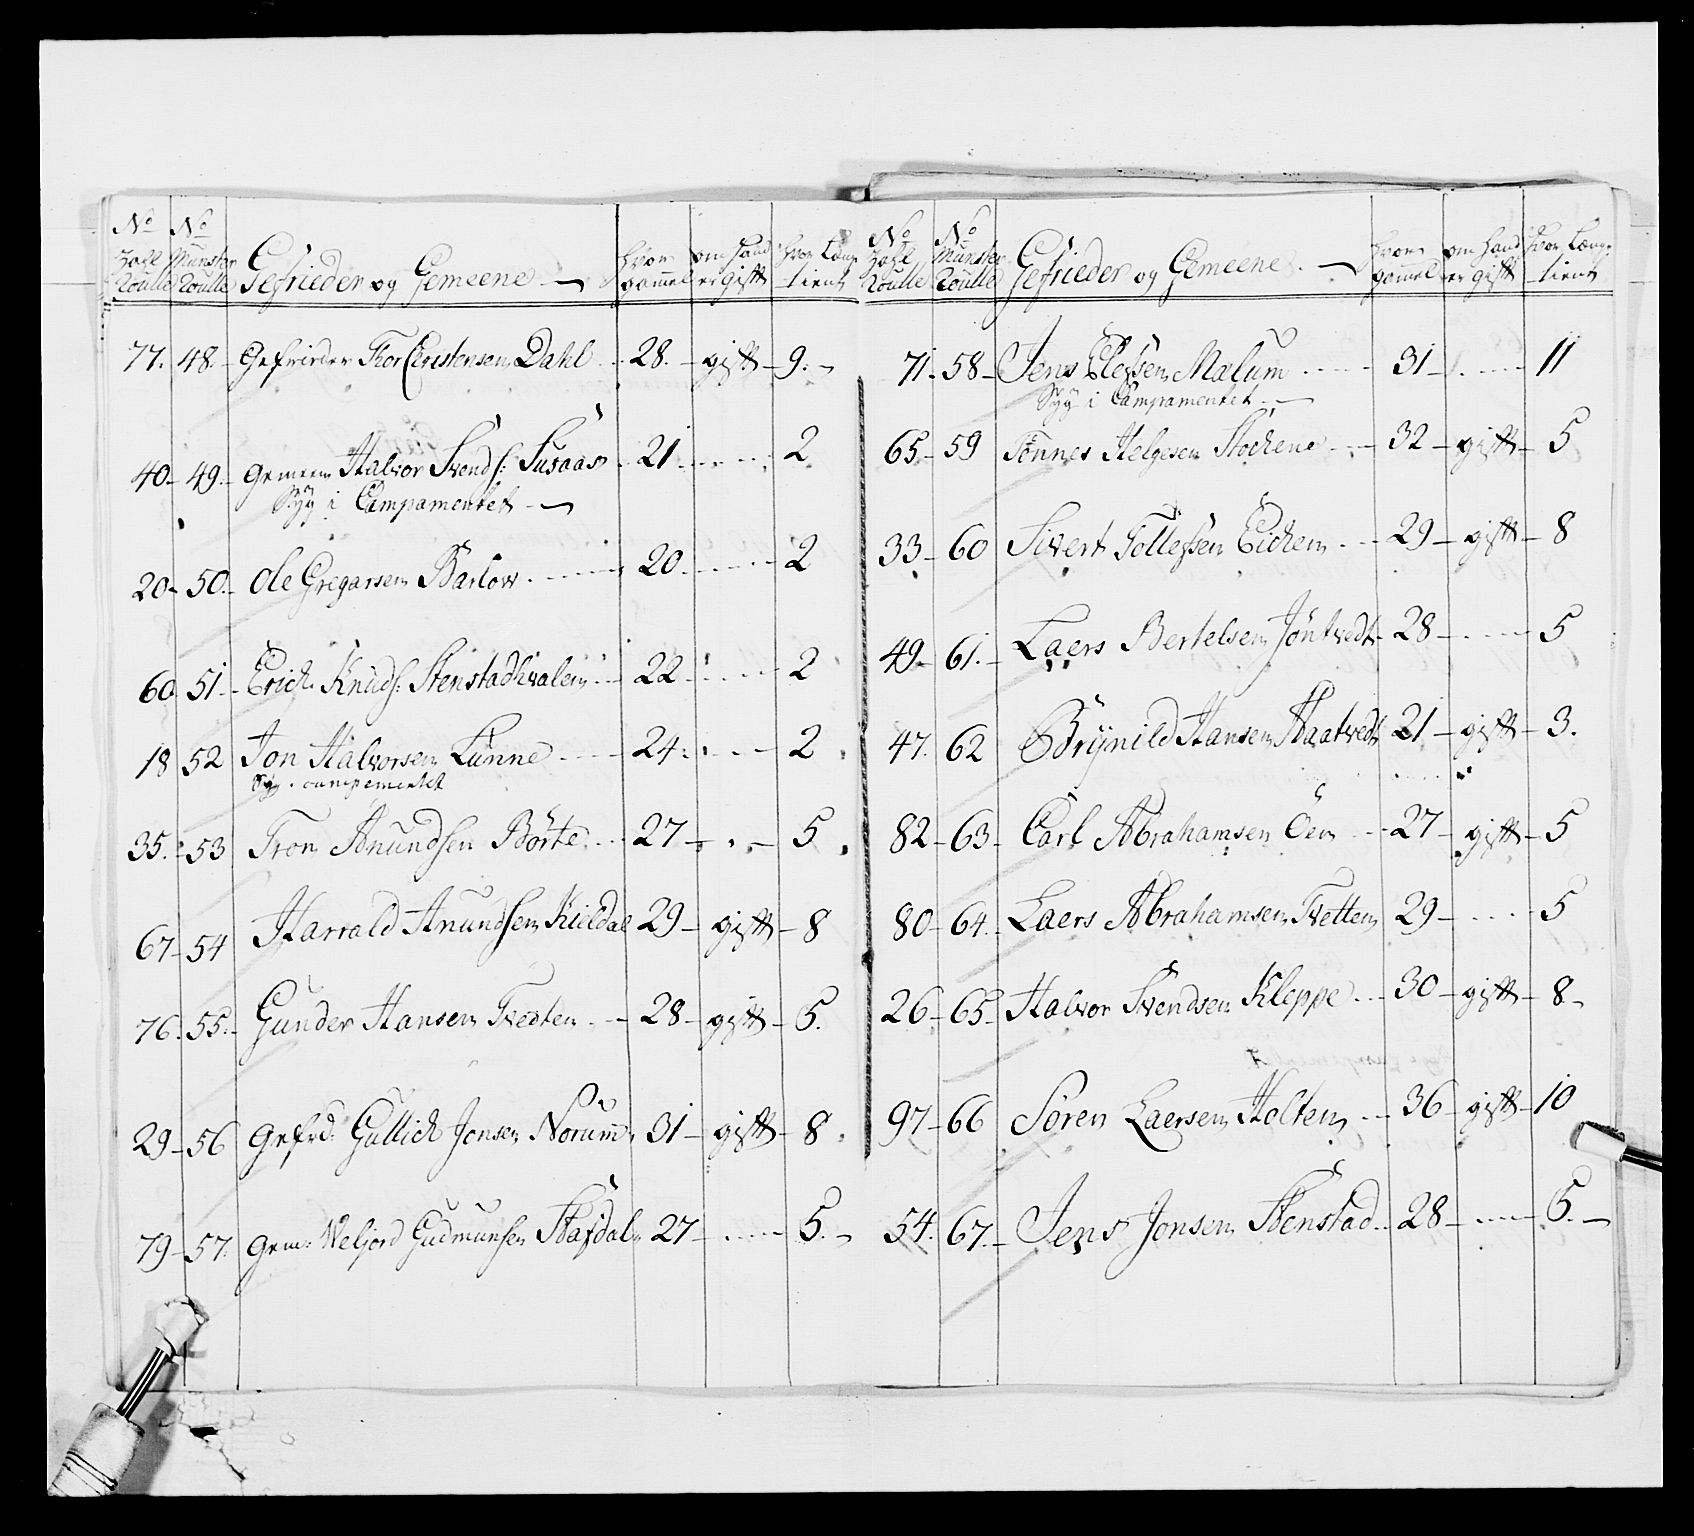 No No
Zahl Munster Gefrieder og Gemeene hvor om hand hvor Læng
Roulle Roulle gammel er gift tient
77. 48. Gefrieder Thor Christensen Dahl 28. gift 9.
40 49 Gemeen Halvor Svends: Susaas 21 2
Syg i Campamentet
20 50 Ole Gregarsen Barlow 20 2
60 51 Erich Knuds: Stenstadhvalen 22 2
18 52 Jon Halvorsen Lunne 24 2
Syg i campementet
35. 53 Tron Anundsen Börte 27 5
67 54 Harrald Anundsen Kieldal 29 gift 8
76. 55. Gunder Hansen Tvedten 28 gift 5.
29 56 Gefrd: Gullich Jonsen Norum 31 gift 8
79 57. Gem: Veljord Gudmunsen Hafdal 27 5.
No No
Zahl Munster Gefrieder og Gemeene hvor om hand hvor Læng
Roulle Roulle gammel er gift tient
71 58 Jens Elefsen Mælum 31 11
Syg i Campamentet
65 59 Tönnes Helgesen Stochene 32 gift 5
33 60 Sivert Tollefsen Eichen 29 gift 8
49 61. Laers Bertelsen Jöntvedt 28 5
47. 62 Brynild Hansen Haatvedt 21 gift 3.
82 63 Carl Abrahamsen Öen 27 gift 5
80 64 Laers Abrahamsen Tvetten 29 5
26 65 Halvor Svendsen Kleppe 30 gift 8
97 66 Sören Laersen Holten 36 gift 10
54. 67. Jens Jonsen Stenstad 28 5.